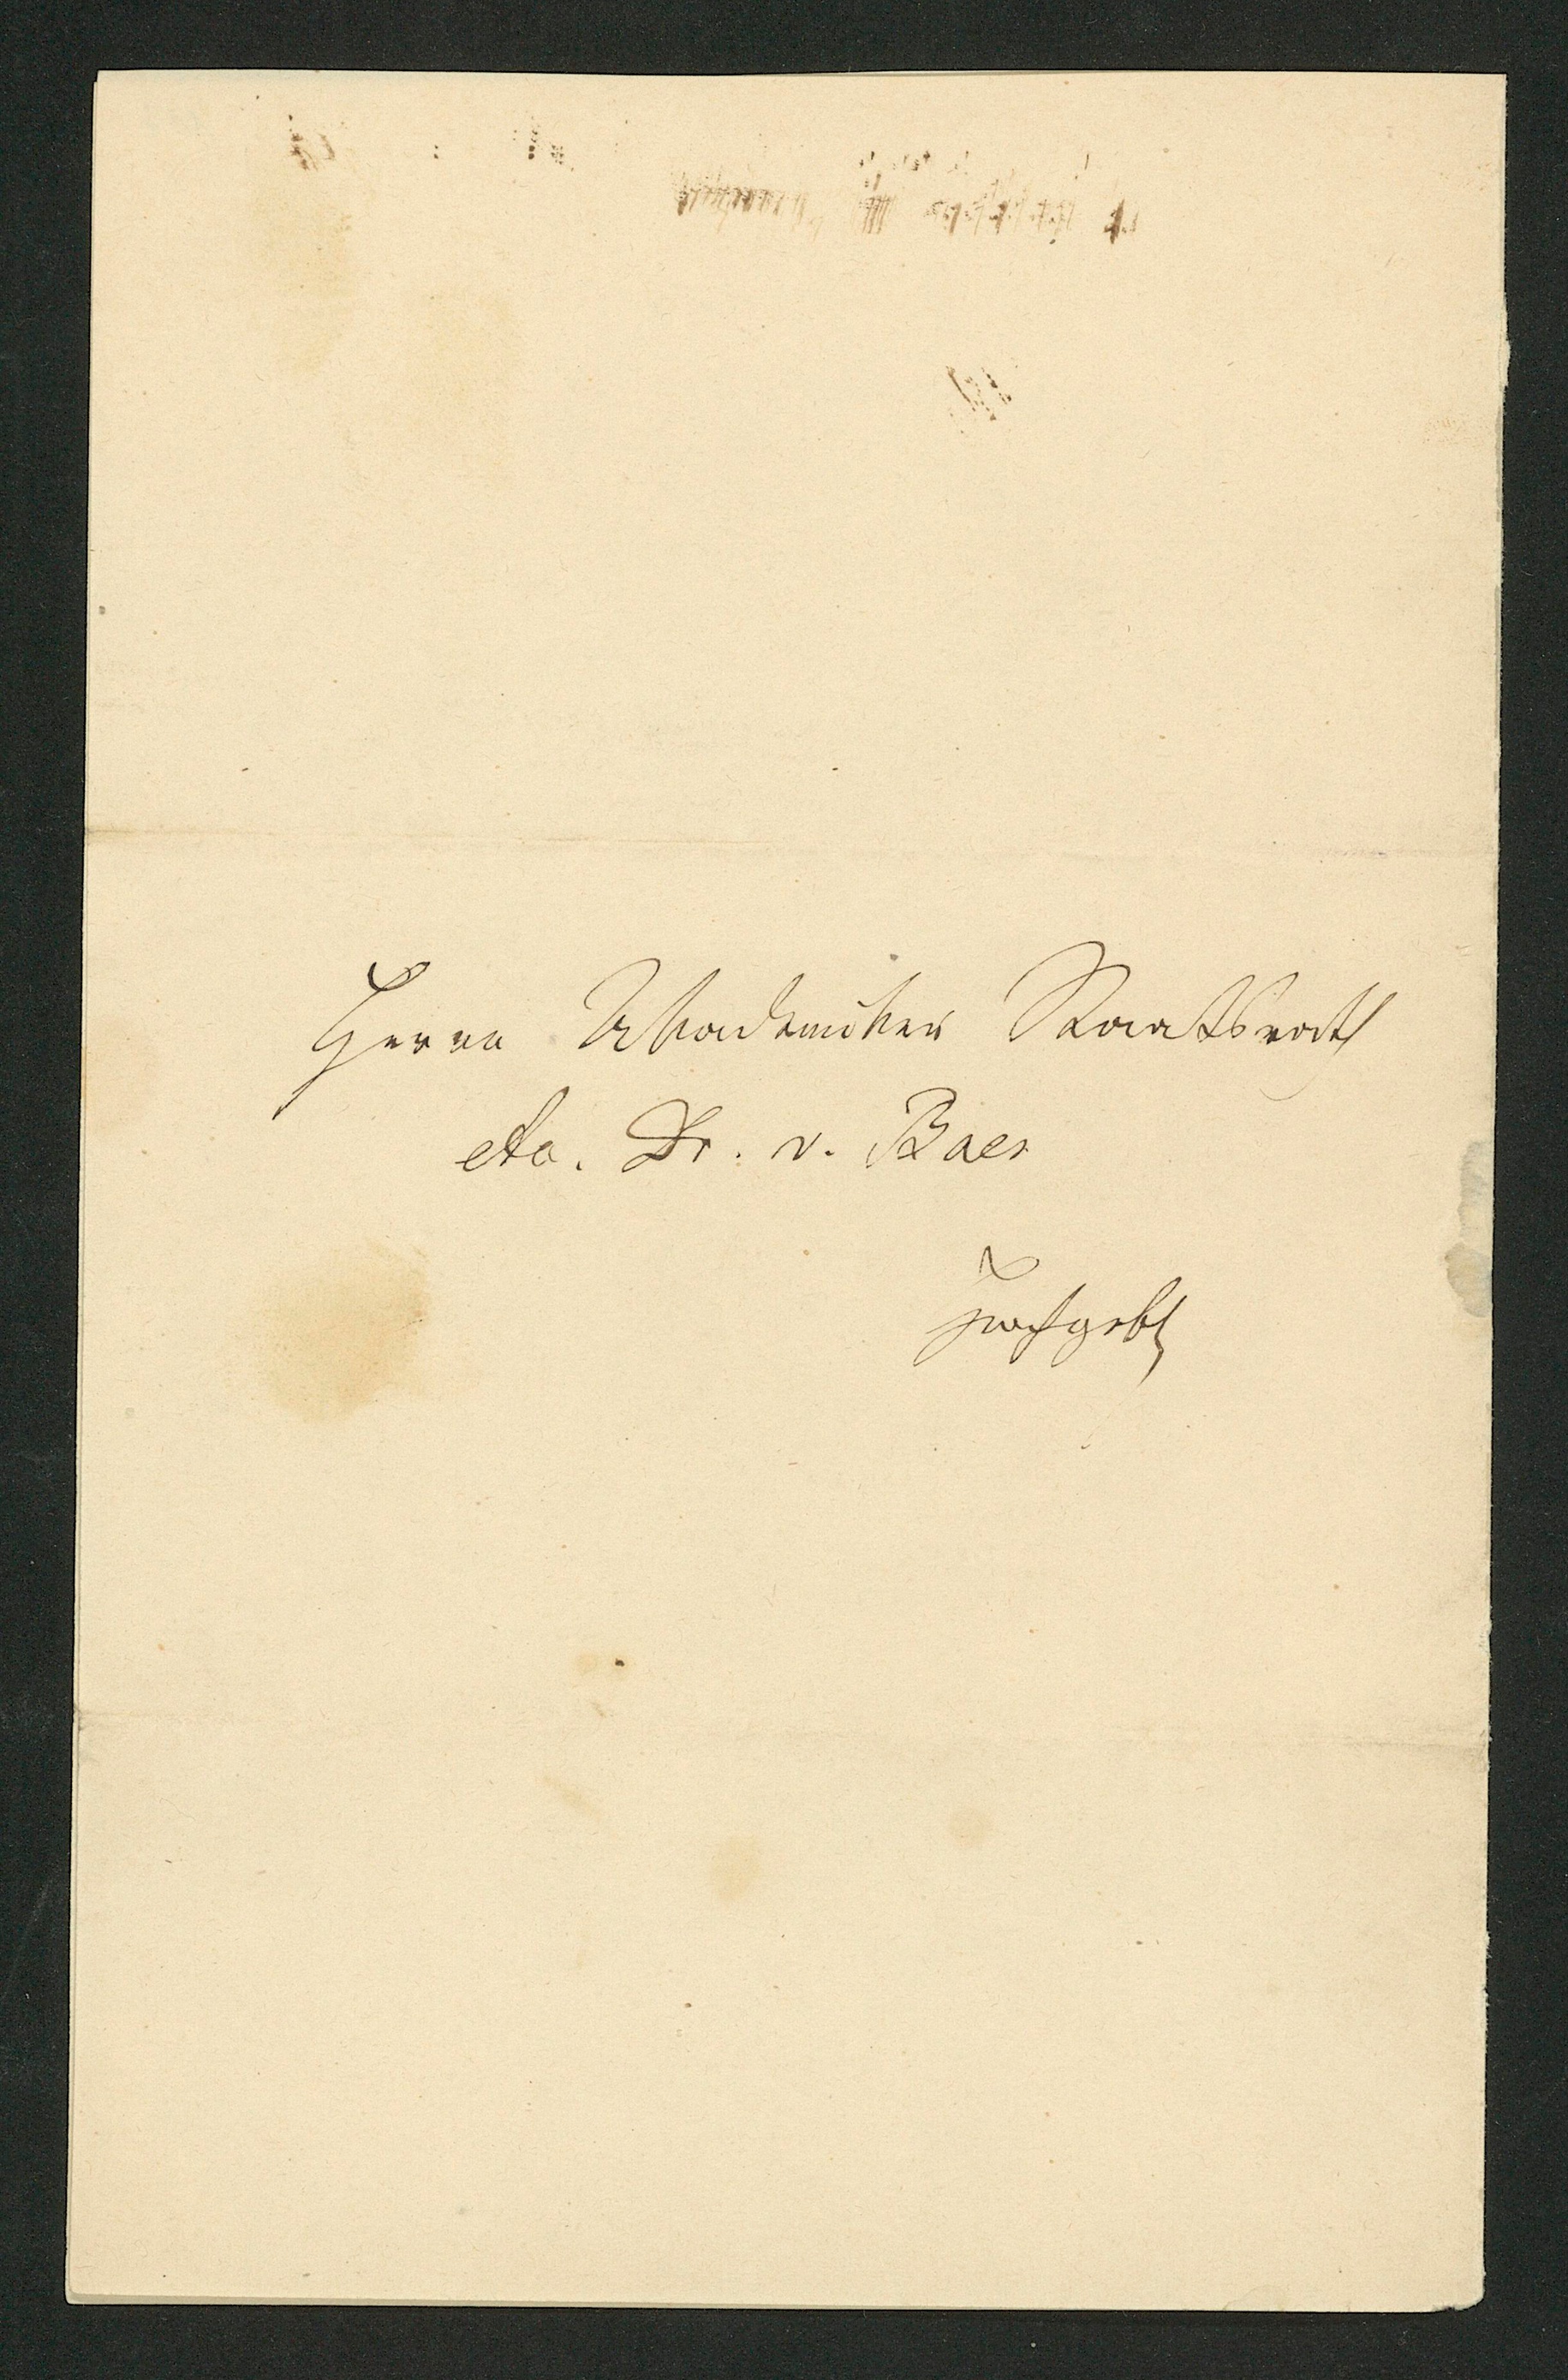 Herrn Akademiker Staatsrath
etc. Dr. v. Baer
Hochgeb